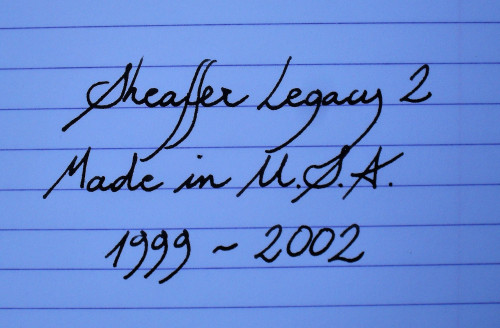 Sheaffer Legacy 2
Made in U.S.A.
1999 ~ 2002